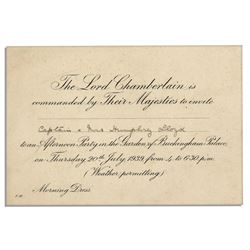 The Lord Chamberlain is
commanded by Their Majesties to invite
Captain & Mrs Humphry Lloyd
to an Afternoon Party in the Garden of Buckingham Palace,
on Thursday 20th July 1939, from 4 to 6.30 p.m.
(Weather permitting)
Morning Dress.